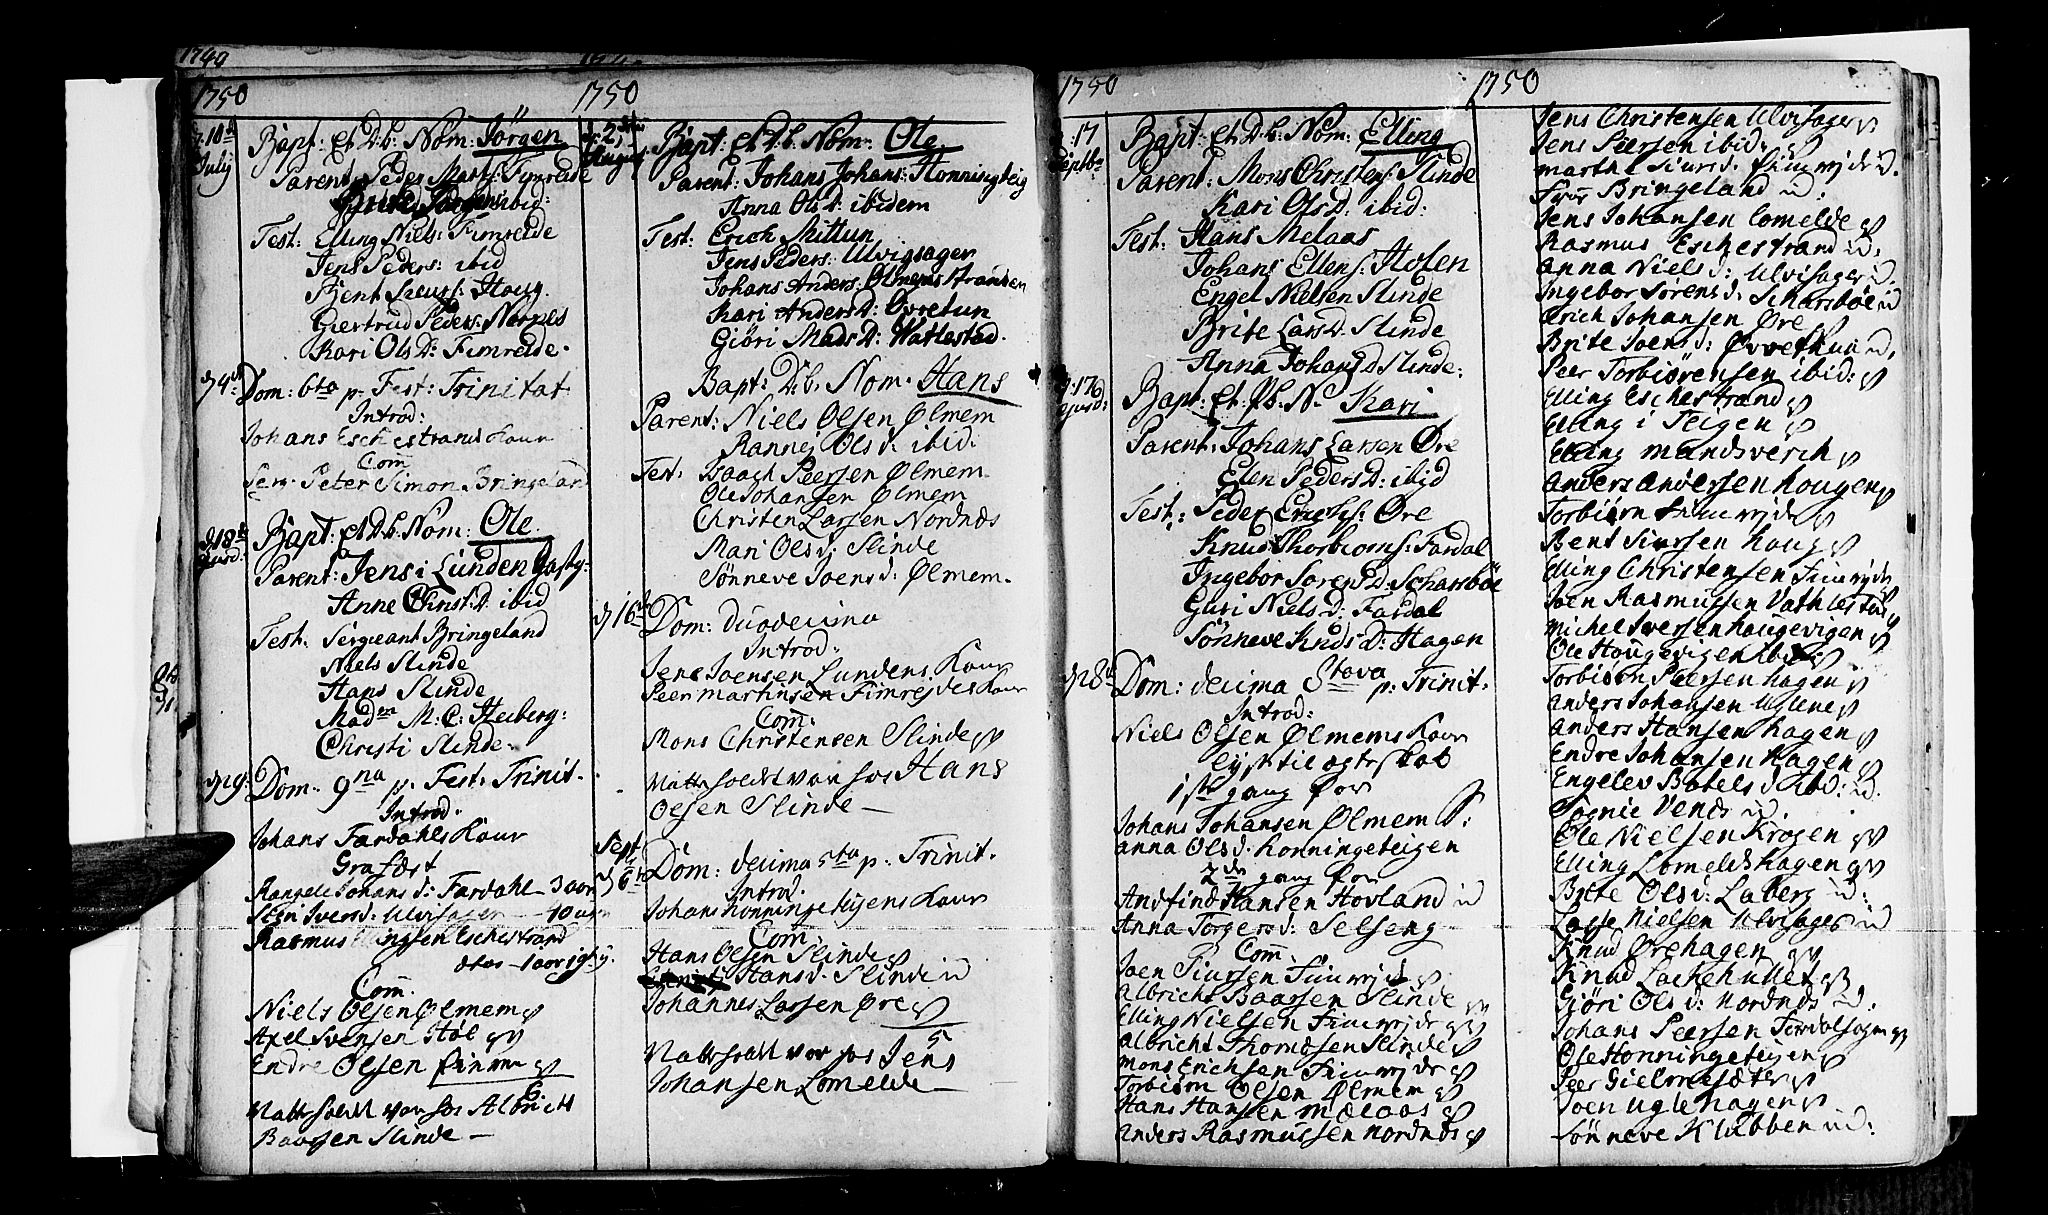 1749
1750
1750
d. 10de Julij
Bapt: Et D. b. Nom: Jörgen
Parent: Peder Marts: Fimreide
ibid:
Test: Elling Niels: Fimreide
Jens Peders: ibid
Bent Siurs: Houg.
Giertrud Peders: Nornes
Kari Ols D: Fimreide.
Dom: 6ta p. Fest: Trinitat
Introd:
Johans Eschestrands Kone
Com
Serg. Peter Simon Bringeland
d. 18de
Bapt: Et D. b. Nom: Ole.
Parent: Jens i Lunden
Anne Christ: D. ibid
Test: Sergeant Bringeland
Niels Slinde
Hans Slinde
Madm M: C: Heiberg:
Christi Slinde.
d. 19
Dom: 9na p. Fest: Trinit.
Introd.
Johans Fardahls Kone
Grafæst
Rangele Johans d: Fardahl 3 aar
Sten Ivers d: Ulvisager 40 aar
Rasmus Eschestrand
Com
Niels Olsen Ølmem
Axel Svensen Høl
Endre Olsen
6
Natt hold var hos Albricht
Baarsen Slinde
d. 2den Aug
Bapt: Et D. b. Nom: Ole
Parent: Johans Johans: Honnisigteig
Anna Ols D: ibidem
Test: Erich Mittun
Jens Peders: Ulvigsager
Johans Anders: Ølmemstranden
Kari Anders D: Øvretun
Giöri Mads D: Wattestad.
Bapt: D. b. Nom. Hans
Parent: Niels Olsen Ølmem
Ranney Ols d. ibid.
Test: Isaach Peersen Ølmem
Ole Johansen Ølmem
Christen Larsen Nordnæs
Mari Ols d: Slinde
Sönneve Joens d: Ølmem.
d. 16de
Dom: duodecima
Introd.
Jens Joensen Lundens Kone
Peer Martinsen Fimreides Kone
Com:
Mons Christensen Slinde
Natt hold var hos Hans
Olsen Slinde
Sept d. 6te
Dom: decima 5ta p: Trinit.
Introd.
Johans Honningeteigens Kone
Com:
Hans Olsen Slinde
Hans d. Slinde
Johannes Larsen Øre
5
Natt hold var hos Jens
Johansen Lomelde
1750
1750
d. 17 Septbr
Bapt: Et D. b. Nom: Elling
Parent: Mons Christens: Slinde
Kari Ols D. ibid:
Test: Hans Melaas
Johans Ellens: Holen
Engel Nielsen Slinde
Brite Lars D: Slinde
Anna Johans D Slinde:
d. 17
Bapt: Et. D. b. N. Kari
Parent: Johans Larsen Øre
Elen Peders D: ibid
Test: Peder Erichs: Øre
Knud Thorbiorns: Fardal
Ingebor Sorens D: Scharsböe
Guri Niels D: Fardal
Sönneve Knuds D: Hagen
d. 28de
Dom: decima 8tava p: Trinit.
Introd:
Niels Olsen Ølmems Kone
Lyst til ægteskab
1ste gang for
Johans Johansen Ølmem
Anna Ols d. Honningeteigen
2den gang for
Andfind Hansen Hovland
Anna Torgers d: Selseng
Com
Joen Siursen Fimrejde
Albricht Baarsen Slinde
Elling Nielsen Fimrejde
Albricht Thomæsen Slinde
Mons Erichsen Fimrejde
Torbiörn Olsen Ølmem
Hans Hansen Mælaas
Anders Rasmussen Nordnæs
Jens Christensen Ulvisager
Jens Peersen ibid:
Martha Siurs d: Fimrejde
Bringeland
Jens Johansen Lomelde
Rasmus Eschestrand
Anna Niels d: Ulvisager
Ingebor Sörens d: Scharsböe
Erich Johansen Øre
Brite Joens d: Øvrethun
Peer Torbiörensen ibid:
Elling Eschestrand
Elling i Teigen
Elling Mundsverch
Anders Andersen Hougen
Torbiörn Fimrejde
Bent Siursen Houg
Elling Christensen Fimrejde
Joen Rasmussen Vathlestad
Michel Iversen Hougevigen
Ole Hougevigen
Torbiörn Peersen Hagen
Anders Johansen Uglene
Anders Hansen Hagen
Endre Johansen Hagen
Engelev Botels d ibid:
Ole Nielsen Krogen
Elling Lomeldshagen
Brite Ols d: Laberg
Lasse Nielsen Ulvisager
Knud Ørehagen
Knud Lackehullet
Giöri Ols d: Nordnæs
Johans Peersen Fardalsagen
Ole Honningeteigen
Peer Gielmesæter
Joen Uglehagen
Sönneve Klubben